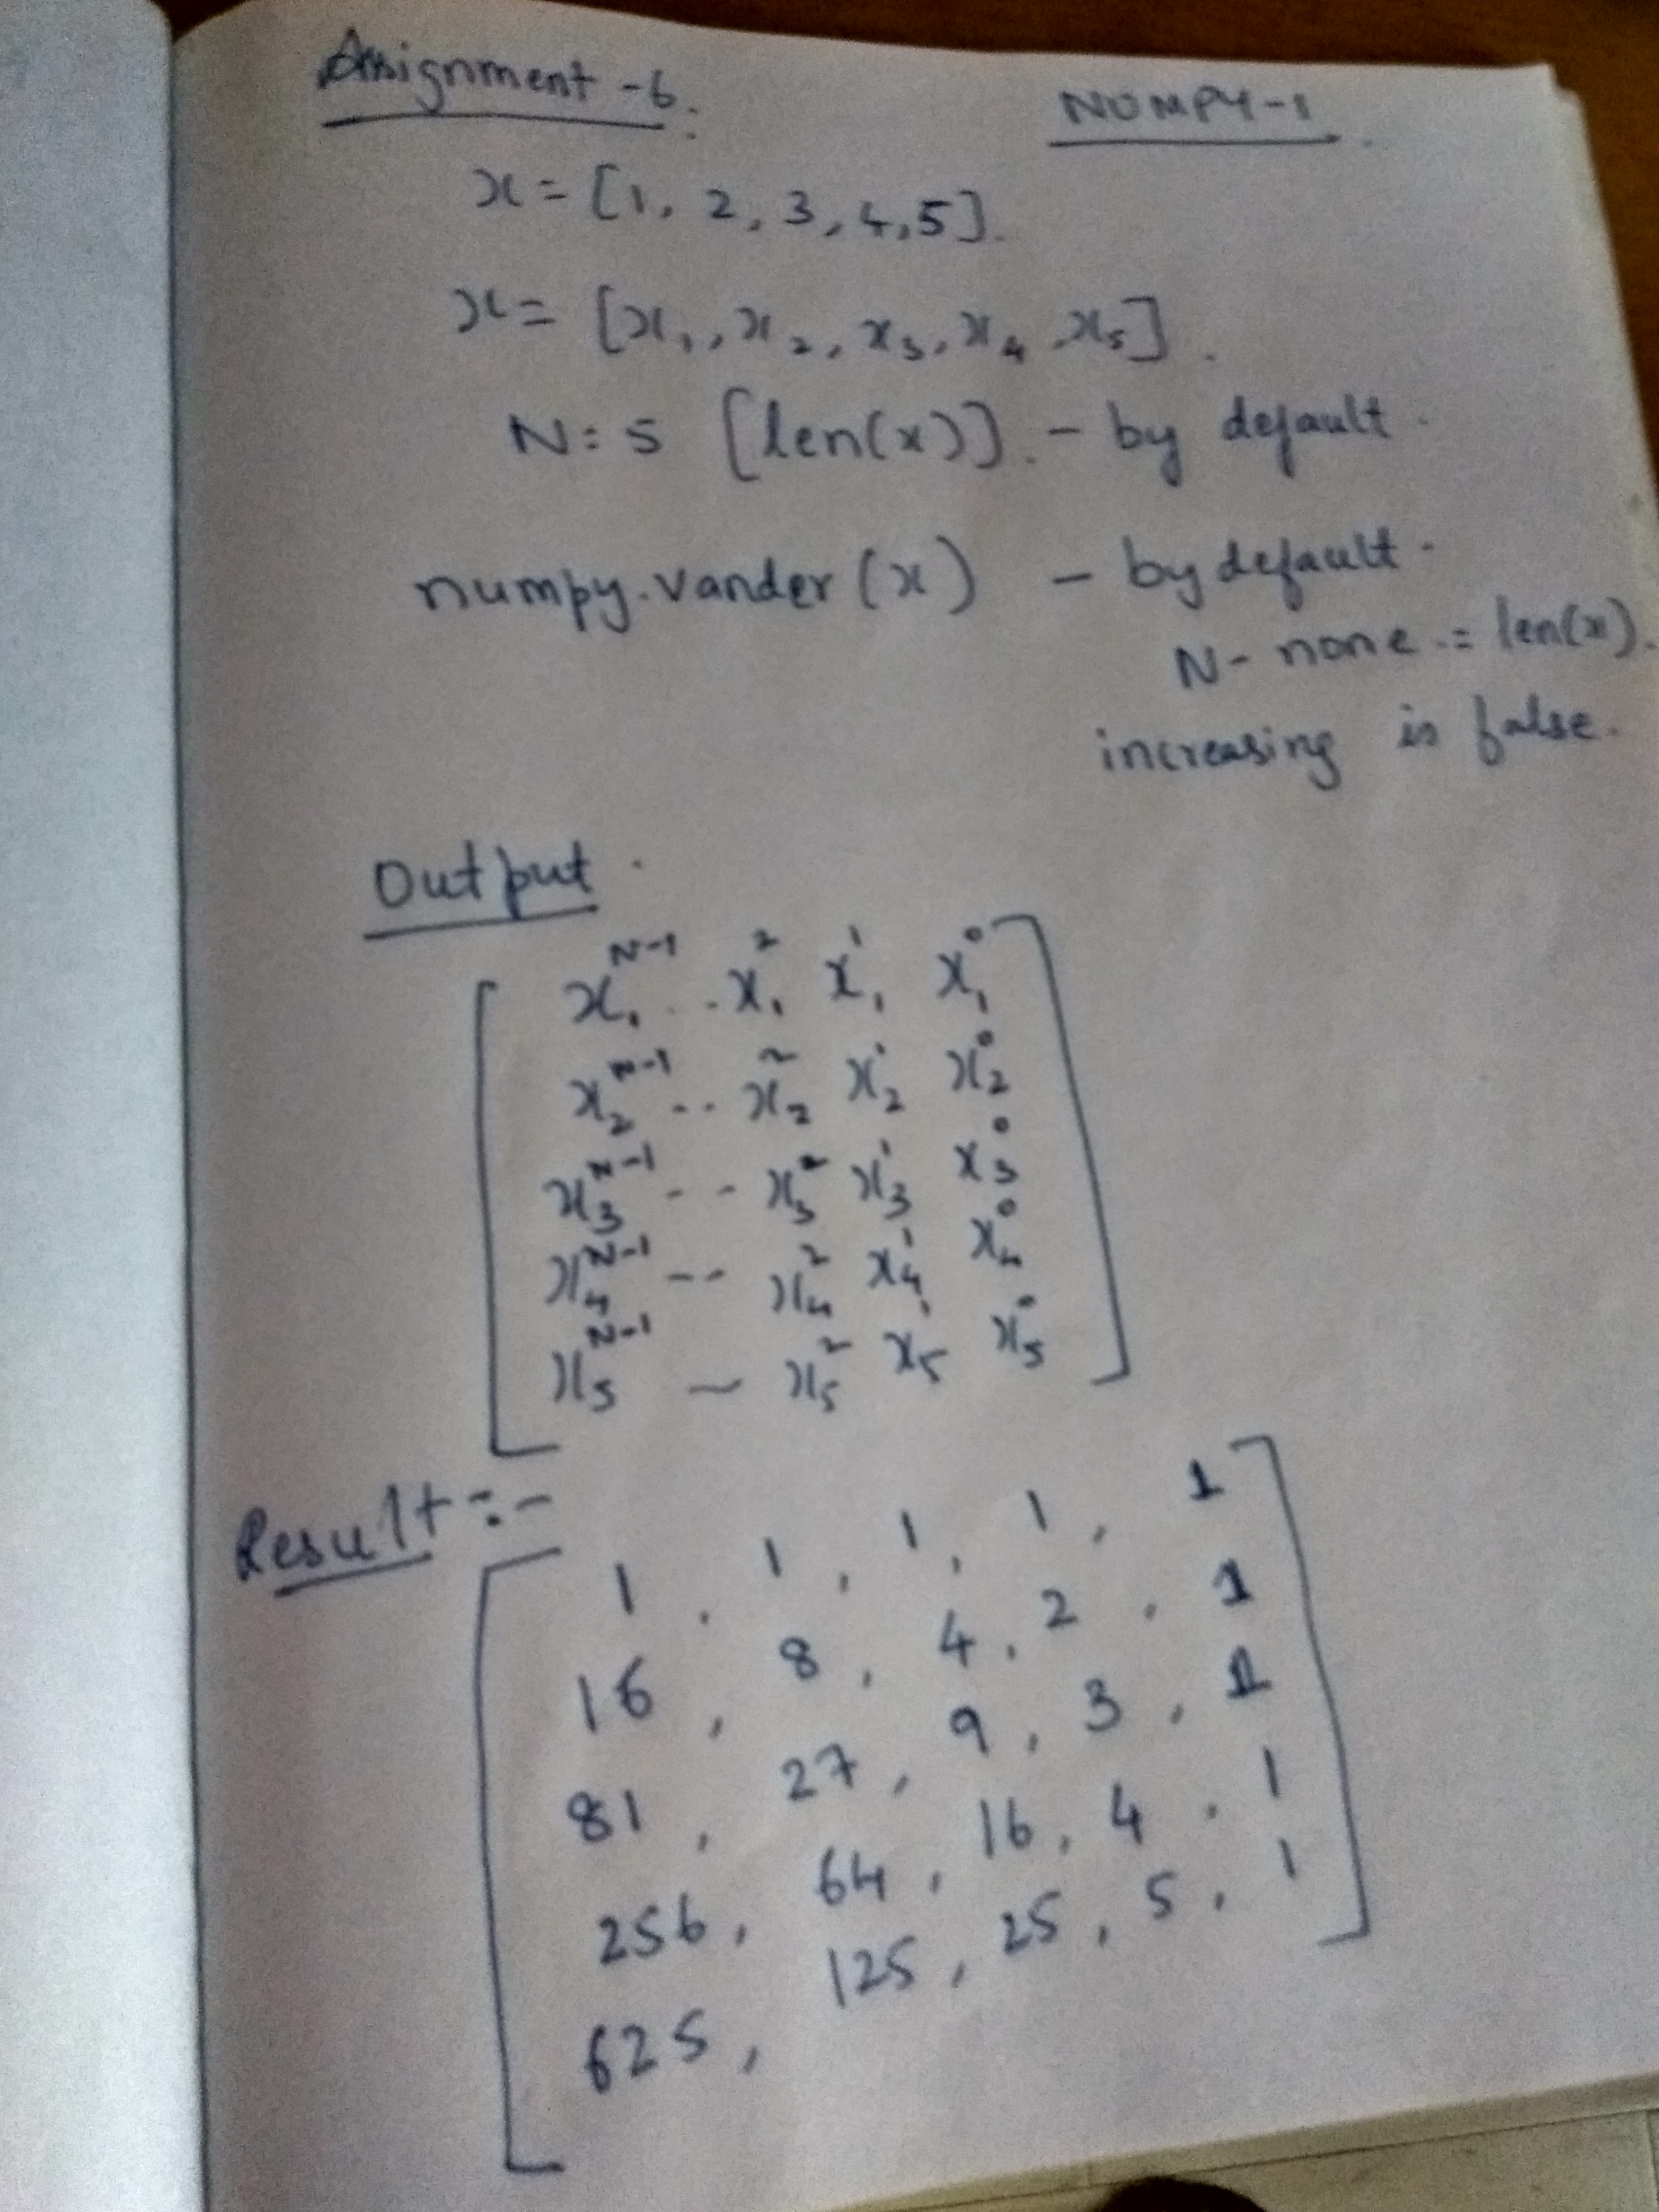 Assignment -6: NUMPY-1.
x = [1, 2, 3, 4, 5].
x = [x₁, x₂, x₃, x₄, x₅].
N = 5 [len(x)]. - by default.
numpy.vander(x) - by default.
N - none = len(x).
increasing is false.
Output.
[ x₁ᴺ⁻¹ .. x₁² x₁¹ x₁⁰
x₂ᴺ⁻¹ .. x₂² x₂¹ x₂⁰
x₃ᴺ⁻¹ -- x₃² x₃¹ x₃⁰
x₄ᴺ⁻¹ -- x₄² x₄¹ x₄⁰
x₅ᴺ⁻¹ — x₅² x₅¹ x₅⁰ ]
Result :-
[ 1, 1, 1, 1, 1
16, 8, 4, 2, 1
81, 27, 9, 3, 1
256, 64, 16, 4, 1
625, 125, 25, 5, 1 ]